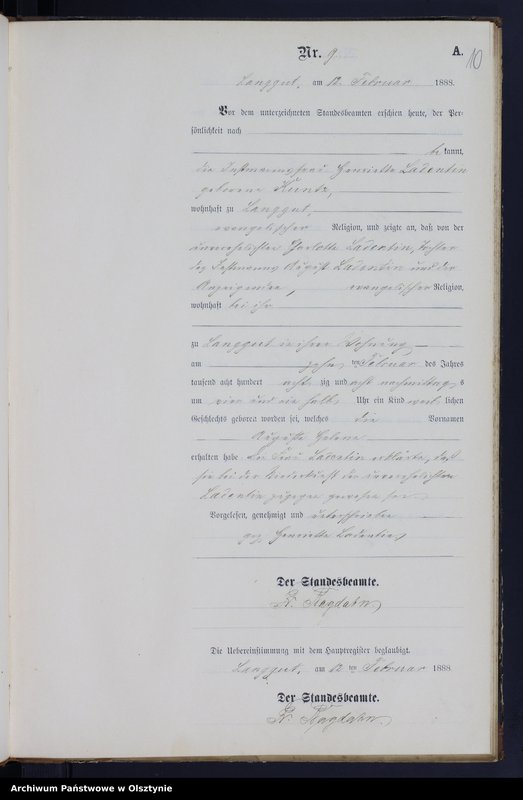 Nr. 9.
A.
10
Langgut, am 12 Februar 1888.
Vor dem unterzeichneten Standesbeamten erschien heute, der Per-
sönlichkeit nach
be kannt,
die Instmannsfrau Henriette Ladentin
geborene Kuntz,
wohnhaft zu Langgut,
evangelischer Religion, und zeigte an, daß von der
unverehelichten Charlotte Ladentin, Tochter
des Instmanns August Ladentin und der
Anzeigenden, evangelischer Religion,
wohnhaft bei ihr
zu Langgut in ihrer Wohnung
am zehn ten Februar des Jahres
tausend acht hundert acht zig und acht nachmittag s
um vier und ein halb Uhr ein Kind weib lichen
Geschlechts geboren worden sei, welches die Vornamen
Auguste Helene
erhalten habe. Die Frau Ladentin erklärte, daß
sie bei der Niederkunft der unverehelichten
Ladentin zugegen gewesen sei
Vorgelesen, genehmigt und unterschrieben
gez. Henriette Ladentin
Der Standesbeamte.
Die Uebereinstimmung mit dem Hauptregister beglaubigt.
Langgut, am 12 ten Februar 1888.
Der Standesbeamte.
Archiwum Państwowe w Olsztynie